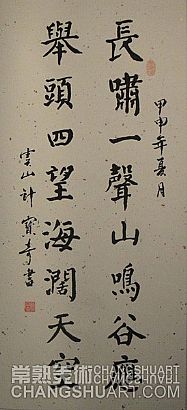 甲申年夏月
長嘯一聲山鳴谷應
舉頭四望海濶天空
雲山計寶奇書
常熟美術 CHANGSHUART
CHANGSHUART.COM